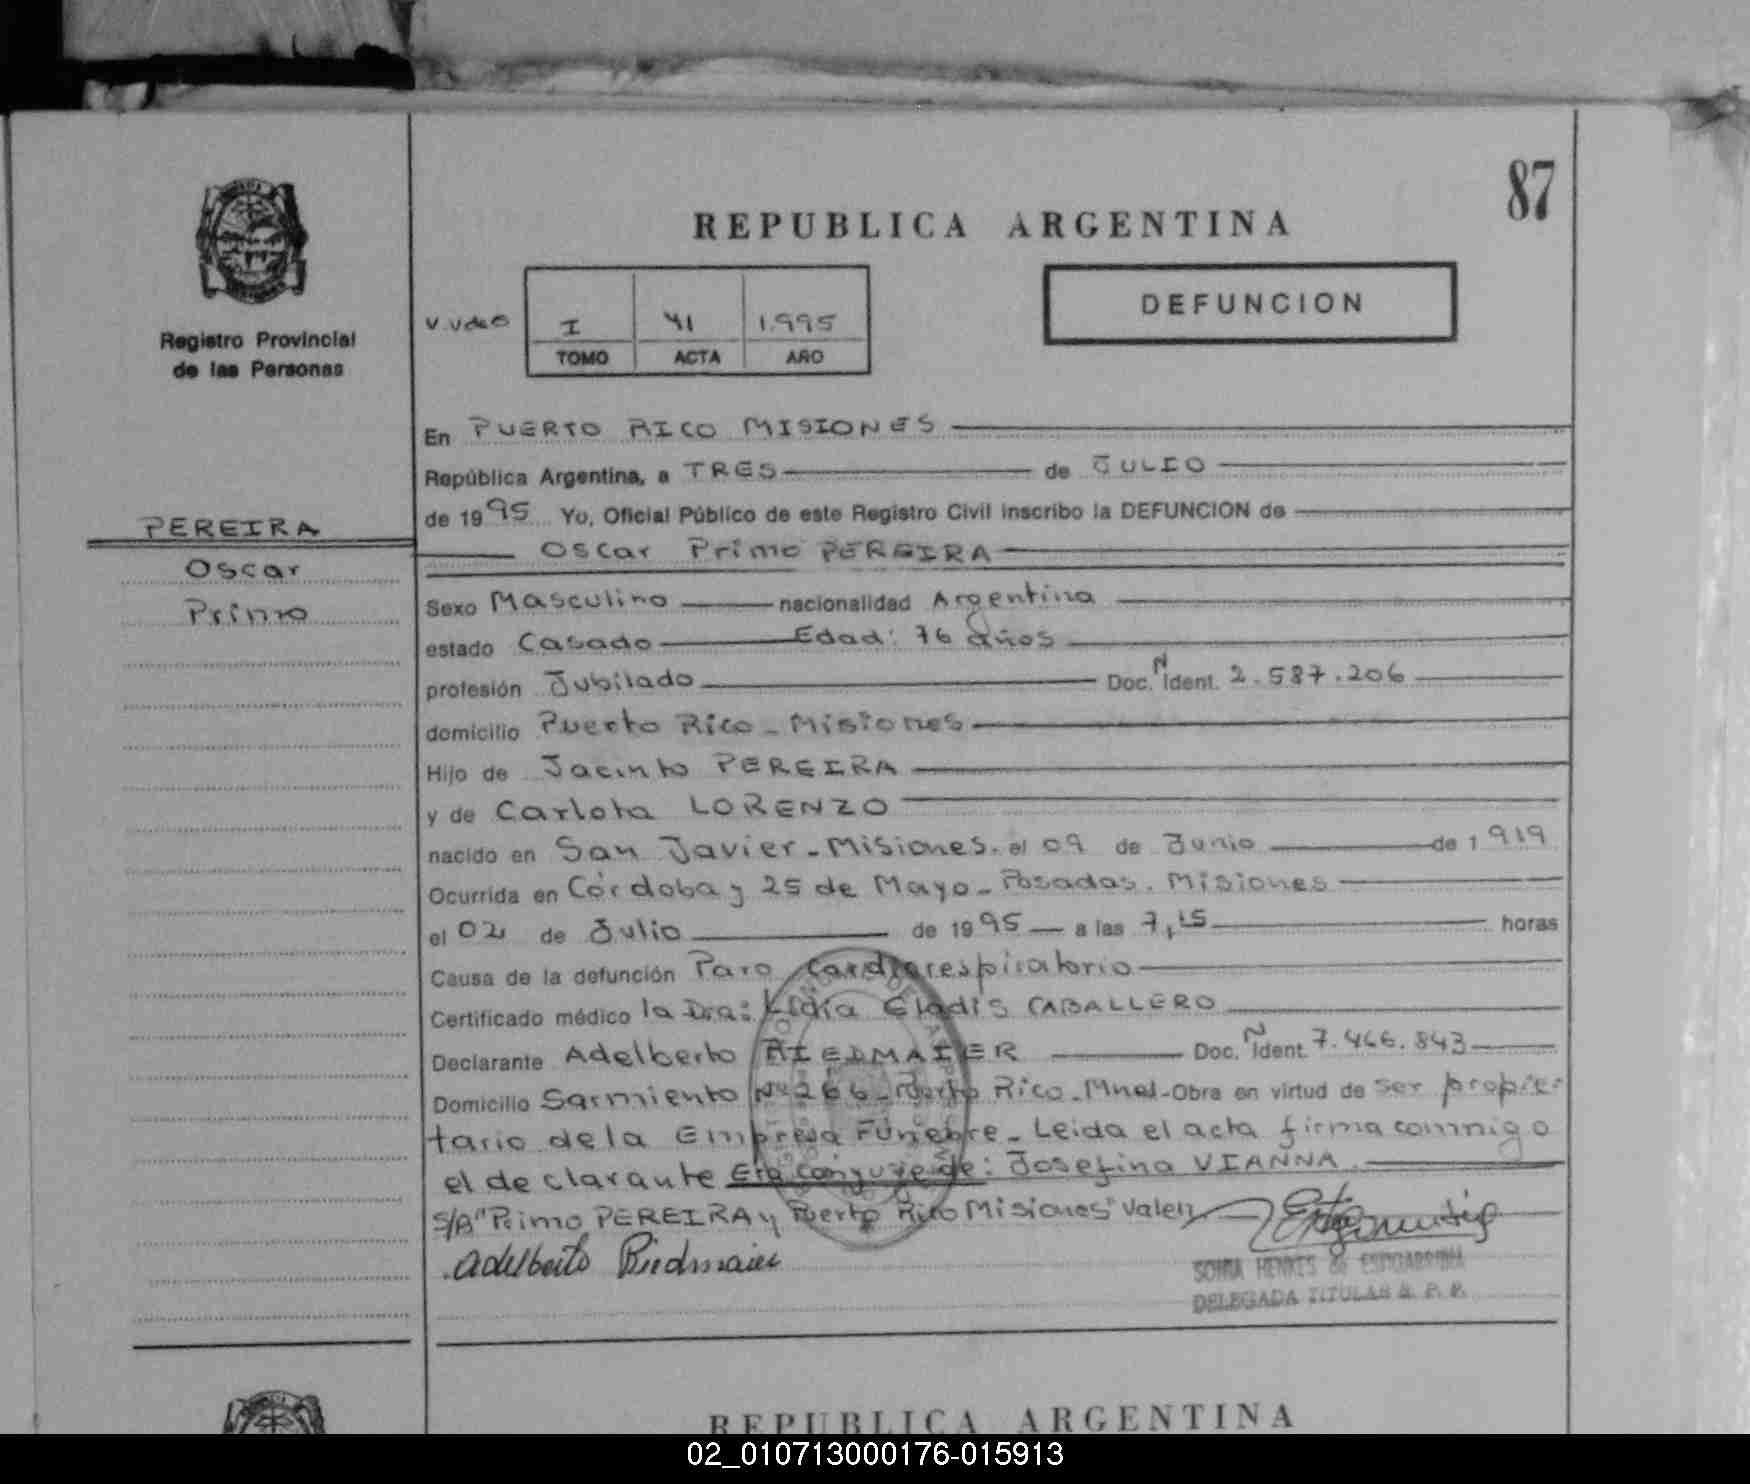 87
REPUBLICA ARGENTINA
DEFUNCION
I 41 1.995
TOMO ACTA AÑO
Registro Provincial
de las Personas
PEREIRA
Oscar
Primo
En PUERTO RICO MISIONES
República Argentina, a TRES de JULIO
de 1995 Yo, Oficial Público de este Registro Civil inscribo la DEFUNCION de
Oscar Primo PEREIRA
Sexo Masculino nacionalidad Argentina
estado Casado Edad: 76 años
profesión Jubilado Doc. N Ident. 2.587.206
domicilio Puerto Rico - Misiones
Hijo de Jacinto PEREIRA
y de Carlota LORENZO
nacido en San Javier - Misiones. el 09 de Junio de 1919
Ocurrida en Córdoba y 25 de Mayo - Posadas. Misiones
el 02 de Julio de 1995 a las 7,15 horas
Causa de la defunción Paro Cardiorespiratorio
Certificado médico la Dra: Lidia Gladis CABALLERO
Declarante Adelberto RIEDMAIER Doc. N Ident. 7.466.843
Domicilio Sarmiento Nº 266 - Puerto Rico. Mnes - Obra en virtud de ser propie-
tario de la Empresa Fúnebre - Leida el acta firma conmigo
el declarante Era cónyuge de: Josefina VIANNA
S/R "Primo PEREIRA y Puerto Rico Misiones" Valen
Adelberto Riedmaier
DELEGADA TITULAR R. P. P.
REPUBLICA ARGENTINA
02_010713000176-015913